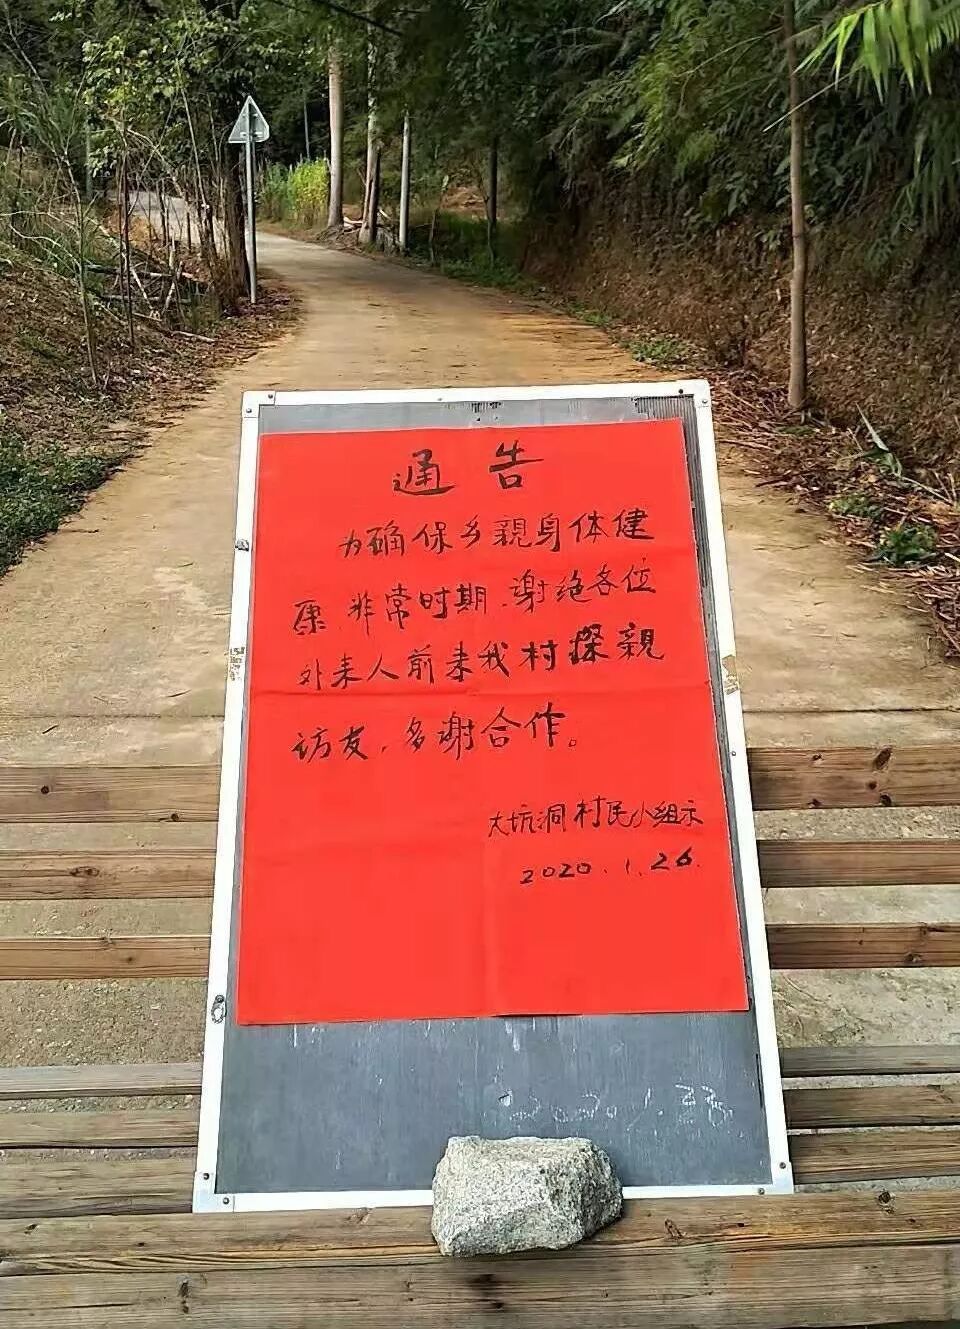 通告
为确保乡親身体健
康、非常时期、谢绝各位
外来人前来我村探親
访友,多谢合作。
大坑洞村民小组示
2020.1.26.
2020.1.23